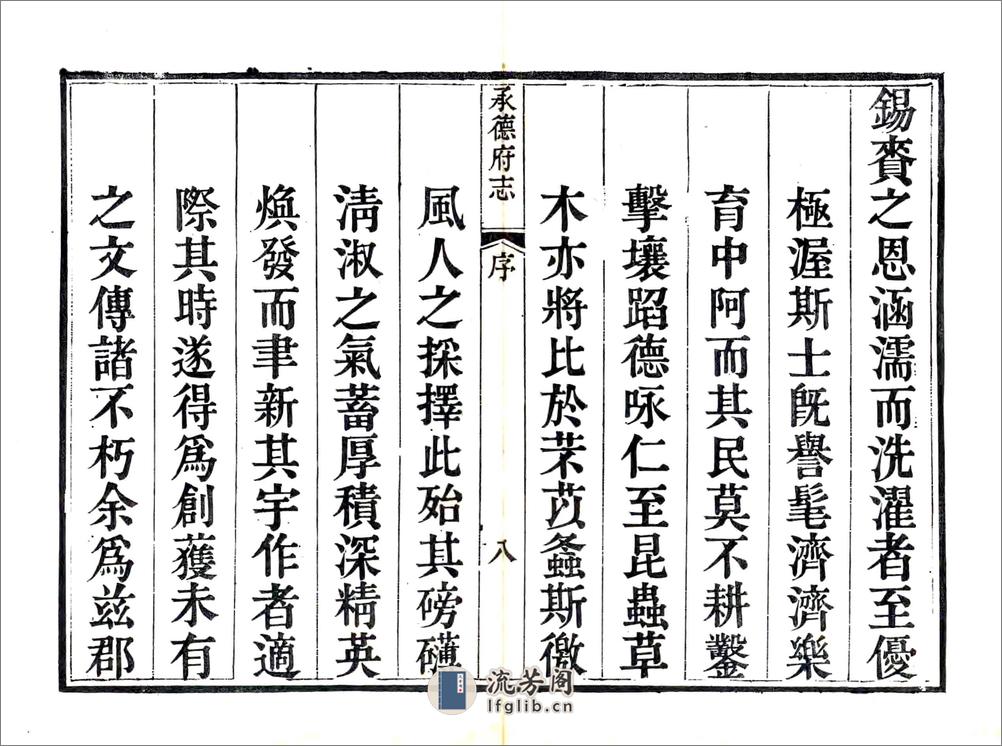 錫賚之恩涵濡而洗濯者至優
極渥斯士旣譽髦濟濟樂
育中阿而其民莫不耕鑿
擊壤蹈德咏仁至昆蟲草
木亦將比於芣苡螽斯徼
承德府志 序 八
風人之採擇此殆其磅礴
淸淑之氣蓄厚積深精英
煥發而聿新其宇作者適
際其時遂得爲創獲未有
之文傳諸不朽余爲玆郡
流芳阁
lfglib.cn